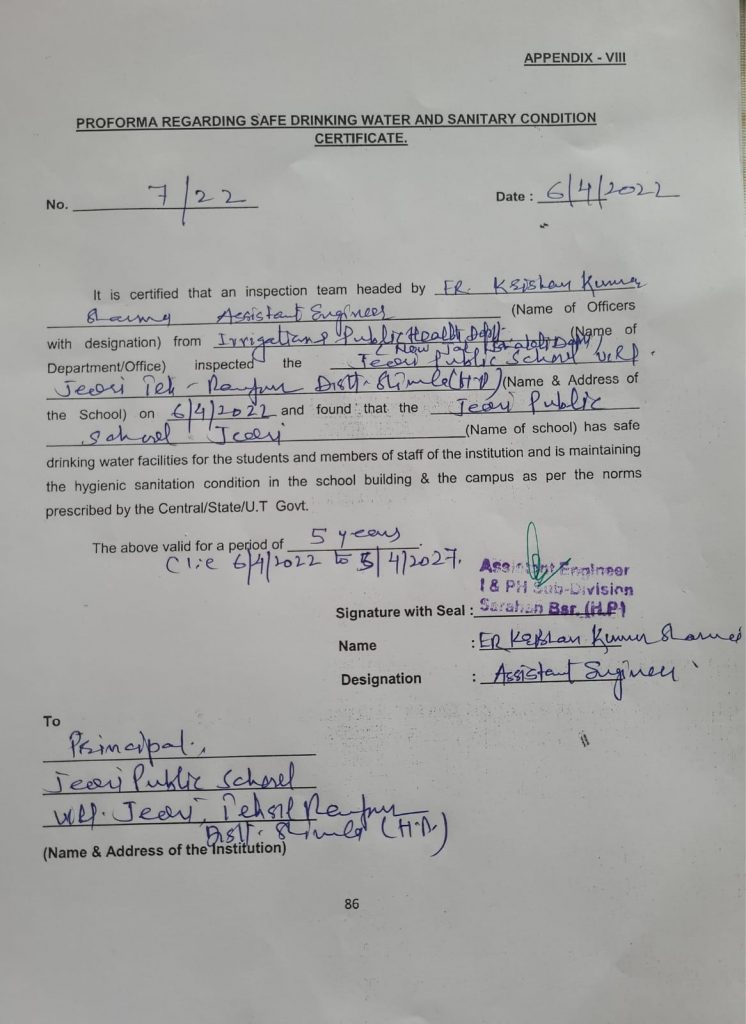 APPENDIX - VIII
PROFORMA REGARDING SAFE DRINKING WATER AND SANITARY CONDITION
CERTIFICATE.
No. 7/22 Date : 6/4/2022
It is certified that an inspection team headed by ER. Krishan Kumar
Sharma Assistant Engineer (Name of Officers
with designation) from Irrigation & Public Health Deptt. (Name of
(New Jal Shakti Deptt)
Department/Office) inspected the Jeori Public School Vill.
Jeori Teh - Rampur Distt. Shimla (H.P) (Name & Address of
the School) on 6/4/2022 and found that the Jeori Public
School Jeori (Name of school) has safe
drinking water facilities for the students and members of staff of the institution and is maintaining
the hygienic sanitation condition in the school building & the campus as per the norms
prescribed by the Central/State/U.T Govt.
The above valid for a period of 5 years
C i.e 6/4/2022 to 5/4/2027.
Assistant Engineer
I & PH Sub-Division
Signature with Seal : Sarahan Bsr. (H.P)
Name : ER Krishan Kumar Sharma
Designation : Assistant Engineer
To
Principal.,
Jeori Public School
Vill. Jeori, Tehsil Rampur
Distt. Shimla (H.P.)
(Name & Address of the Institution)
86